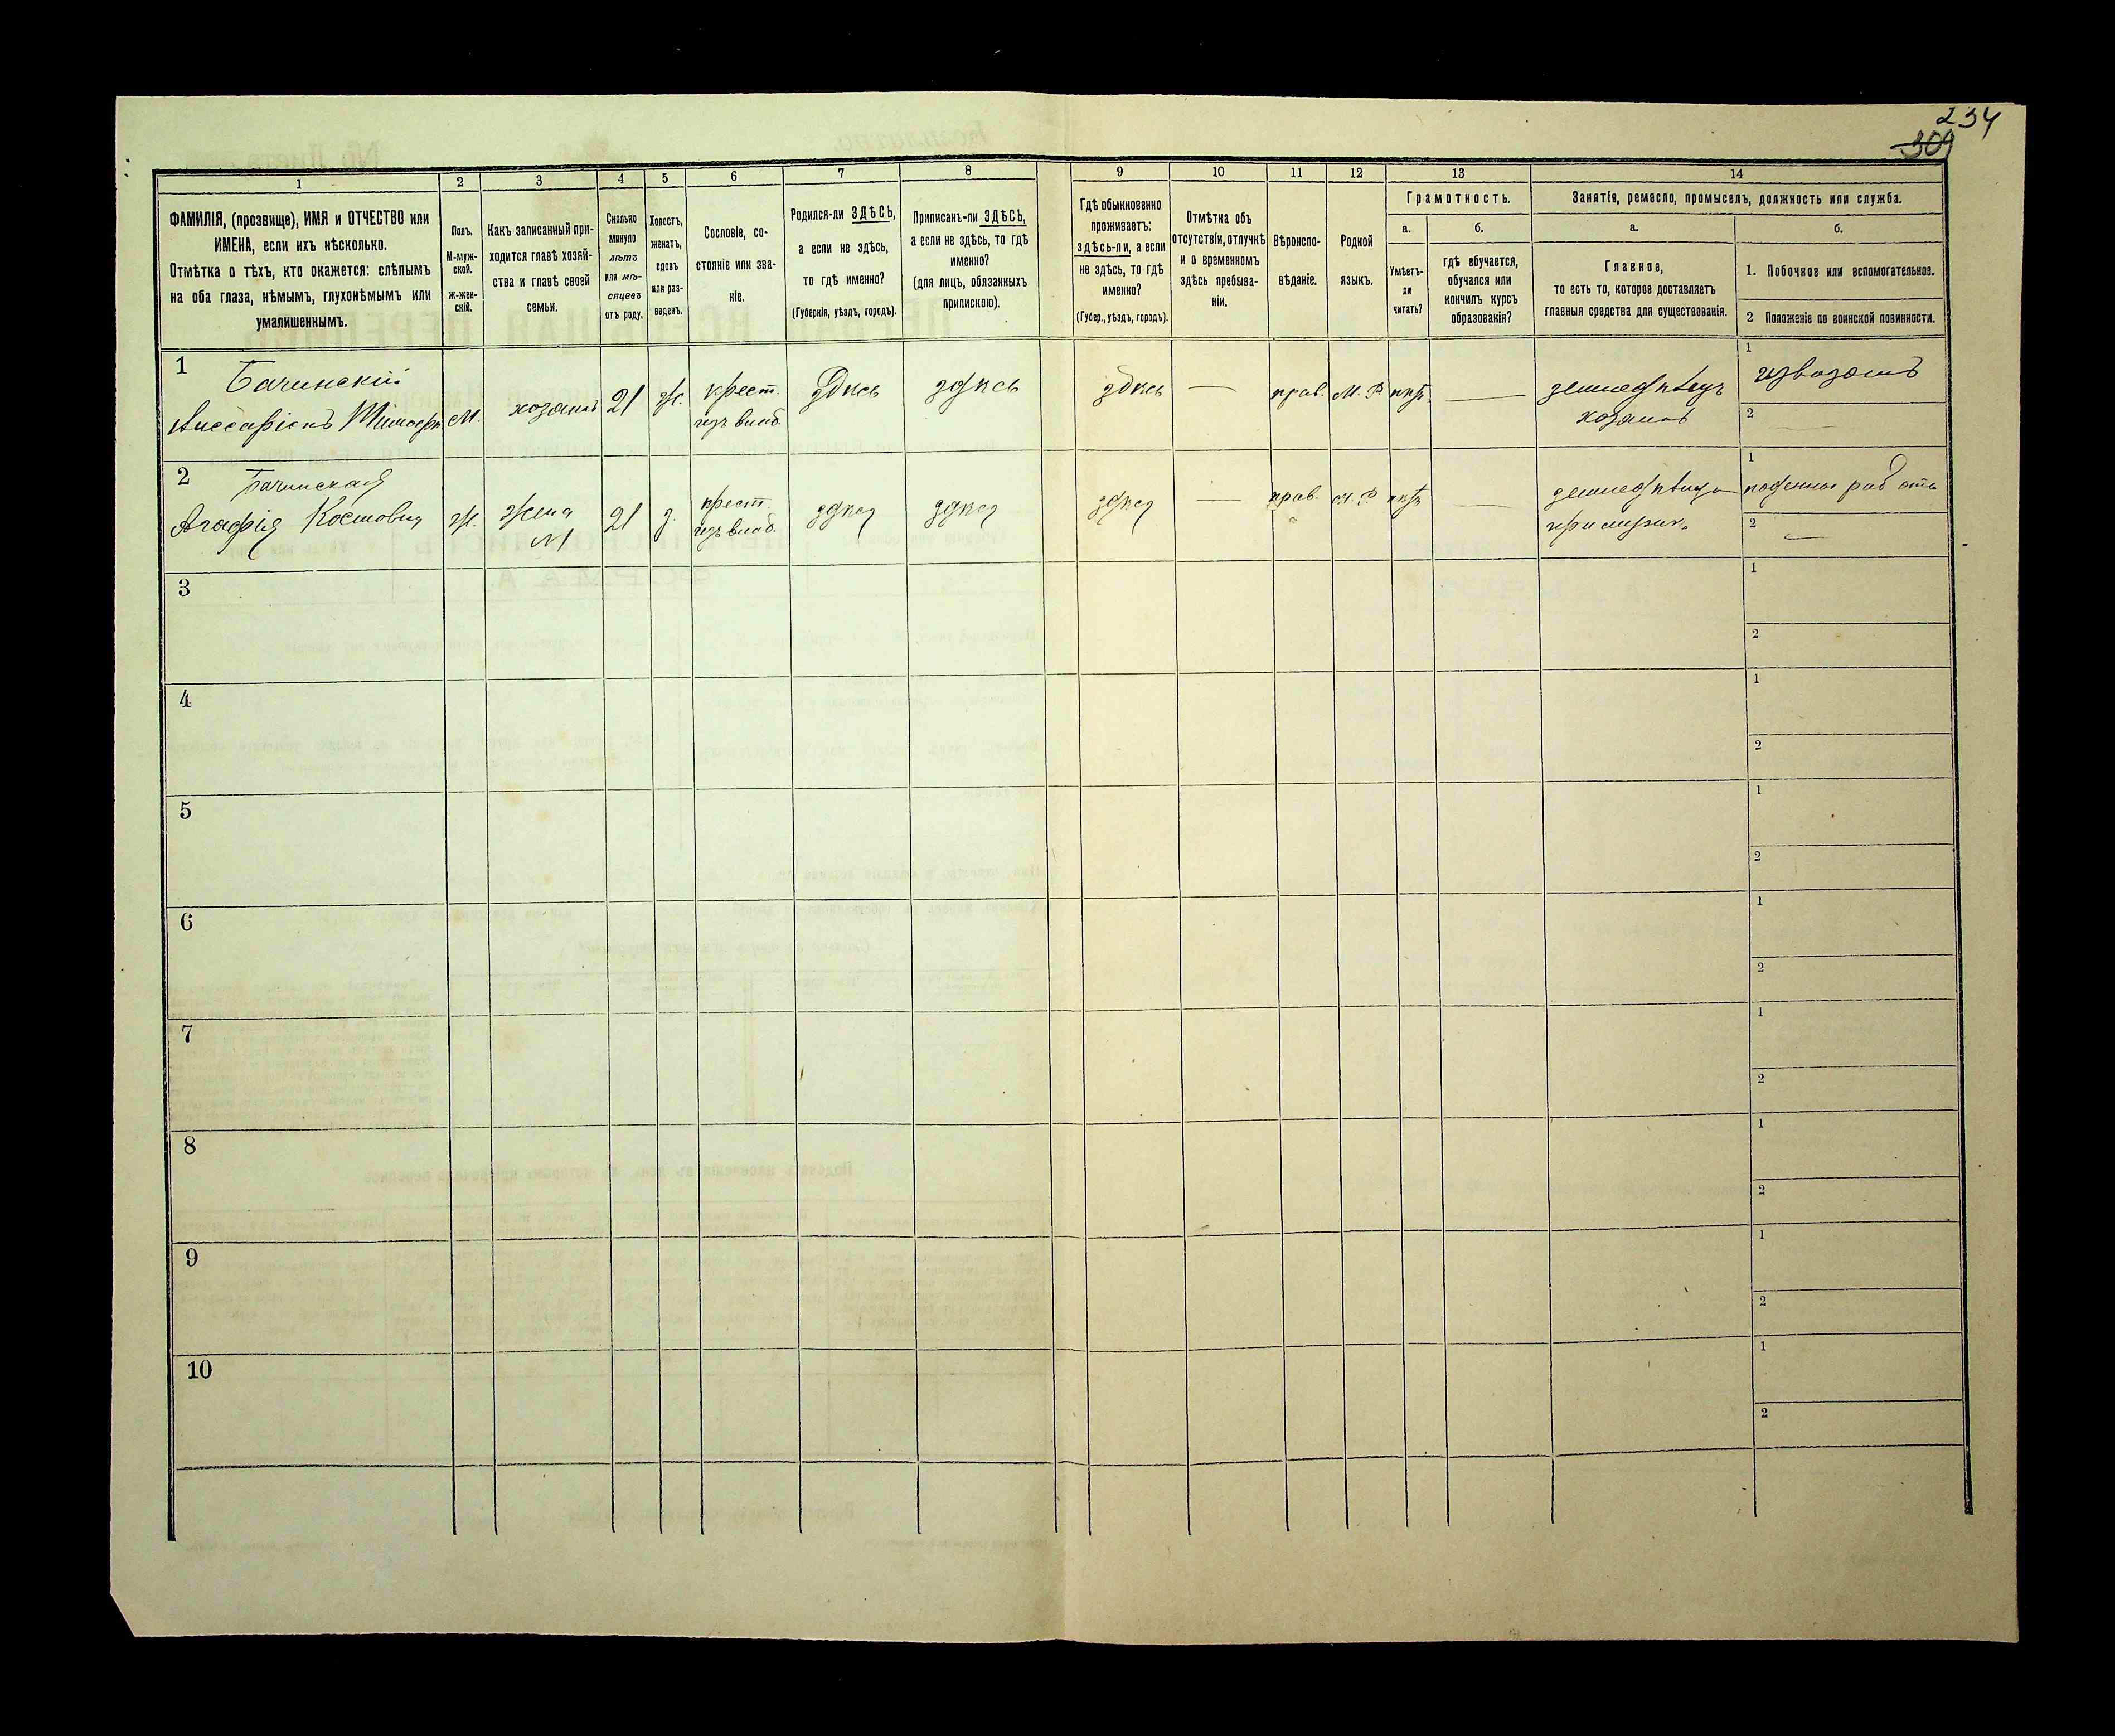 234
309
1
2
3
4
5
6
7
8
9
10
11
12
13
14
ФАМИЛІЯ, (прозвище), ИМЯ и ОТЧЕСТВО или
ИМЕНА, если ихъ нѣсколько.
Отмѣтка о тѣхъ, кто окажется: слѣпымъ
на оба глаза, нѣмымъ, глухонѣмымъ или
умалишеннымъ.
Полъ.
М-муж-
ской.
ж-жен-
скій.
Какъ записанный при-
ходится главѣ хозяй-
ства и главѣ своей
семьи.
Сколько
минуло
лѣтъ
или мѣ-
сяцевъ
отъ роду.
Холостъ,
женатъ,
вдовъ
или раз-
веденъ.
Сословіе, со-
стояніе или зва-
ніе.
Родился-ли ЗДѢСЬ,
а если не здѣсь,
то гдѣ именно?
(Губернія, уѣздъ, городъ).
Приписанъ-ли ЗДѢСЬ,
а если не здѣсь, то гдѣ
именно?
(для лицъ, обязанныхъ
припискою).
Гдѣ обыкновенно
проживаетъ:
здѣсь-ли, а если
не здѣсь, то гдѣ
именно?
(Губер., уѣздъ, городъ).
Отмѣтка объ
отсутствіи, отлучкѣ
и о временномъ
здѣсь пребыва-
ніи.
Вѣроиспо-
вѣданіе.
Родной
языкъ.
Грамотность.
а.
Умѣетъ-
ли
читать?
б.
гдѣ обучается,
обучался или
кончилъ курсъ
образованія?
Занятіе, ремесло, промыселъ, должность или служба.
а.
Главное,
то есть то, которое доставляетъ
главныя средства для существованія.
б.
1. Побочное или вспомогательное.
2 Положеніе по воинской повинности.
1
Бачинскій
Виссаріонъ
М.
хозяинъ
21
ж.
крест.
изъ влад.
здѣсь
здѣсь
здѣсь
—
прав.
М. Р.
нѣтъ
—
земледѣлецъ
хозяинъ
1
извозомъ
2
—
2
Бачинская
Агафія Костовна
ж.
жена
№1
21
з.
крест.
изъ влад.
здѣсь
здѣсь
здѣсь
—
прав.
М. Р.
нѣтъ
—
земледѣлица
при мужѣ
1
поденныя работы
2
—
3
1
2
4
1
2
5
1
2
6
1
2
7
1
2
8
1
2
9
1
2
10
1
2